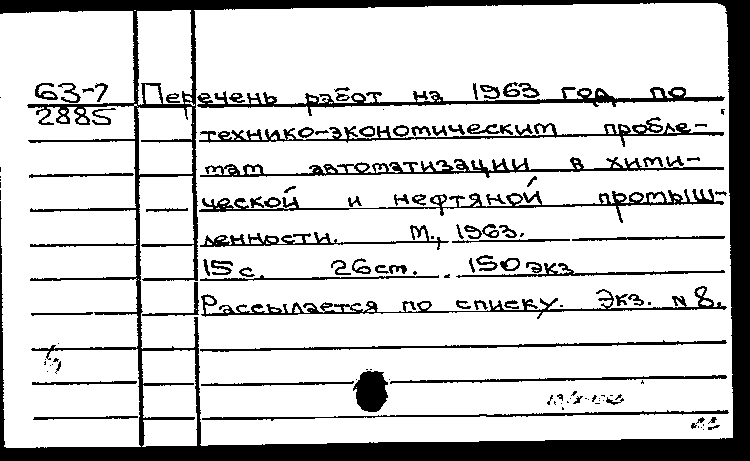 63-7 Перечень работ на 1963 год по
2885
технико-экономическим пробле-
мам автоматизации в хими-
ческой и нефтяной промыш-
ленности. М., 1963.
15 с. 26 см. 150 экз
Рассылается по списку. Экз. N 8.